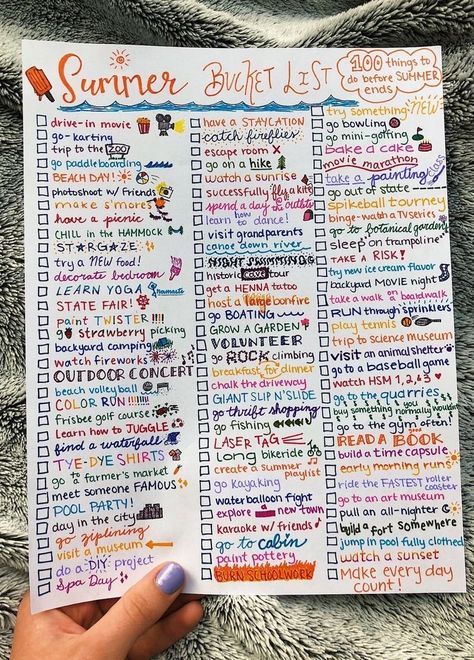 Summer BUCKET LIST
100 things to
do before SUMMER
ends
drive-in movie
go-karting
trip to the ZOO
go paddleboarding
BEACH DAY!
photoshoot w/ friends
make s'mores
have a picnic
CHILL in the HAMMOCK
STARGAZE
try a NEW food!
decorate bedroom
LEARN YOGA namaste
STATE FAIR!
paint TWISTER!
go strawberry picking
backyard camping
watch fireworks
OUTDOOR CONCERT
beach volleyball
COLOR RUN!!!!
frisbee golf course
Learn how to JUGGLE
find a waterfall
TYE-DYE SHIRTS
go 2 a farmer's market
meet someone FAMOUS
POOL PARTY!
day in the CITY
go ziplining
visit a museum
do a DIY project
Spa Day
have a STAYCATION
catch fireflies
escape room
go on a hike
watch a sunrise
successfully fly a kite
spend a day @ the outlets
learn how to dance!
visit grandparents
canoe down river
NIGHT SWIMMING
historic cave tour
get a HENNA tatoo
host a bonfire
go BOATING
GROW A GARDEN
VOLUNTEER
go ROCK climbing
breakfast for dinner
chalk the driveway
GIANT SLIP N'SLIDE
go thrift shopping
go fishing
LASER TAG
long bikeride
create a summer playlist
go kayaking
waterballoon fight
explore a new town
karaoke w/ friends
go to cabin
paint pottery
BURN SCHOOLWORK
try something NEW
go bowling
go mini-golfing
bake a cake
movie marathon
take a painting class
go out of state
spikeball tourney
binge-watch a TV series
go to botanical garden
sleep on trampoline
TAKE A RISK!
try new ice cream flavor
backyard MOVIE night
take a walk @ boardwalk
RUN through sprinklers
play tennis
trip to science museum
visit an animal shelter
go to a baseball game
watch HSM 1, 2, & 3
go to the quarries
buy something u normally wouldn't
go to the gym often!
READ A BOOK
build a time capsule
early morning run
ride the FASTEST roller coaster
go to an art museum
pull an all-nighter
build a fort somewhere
jump in pool fully clothed
watch a sunset
Make every day
count!